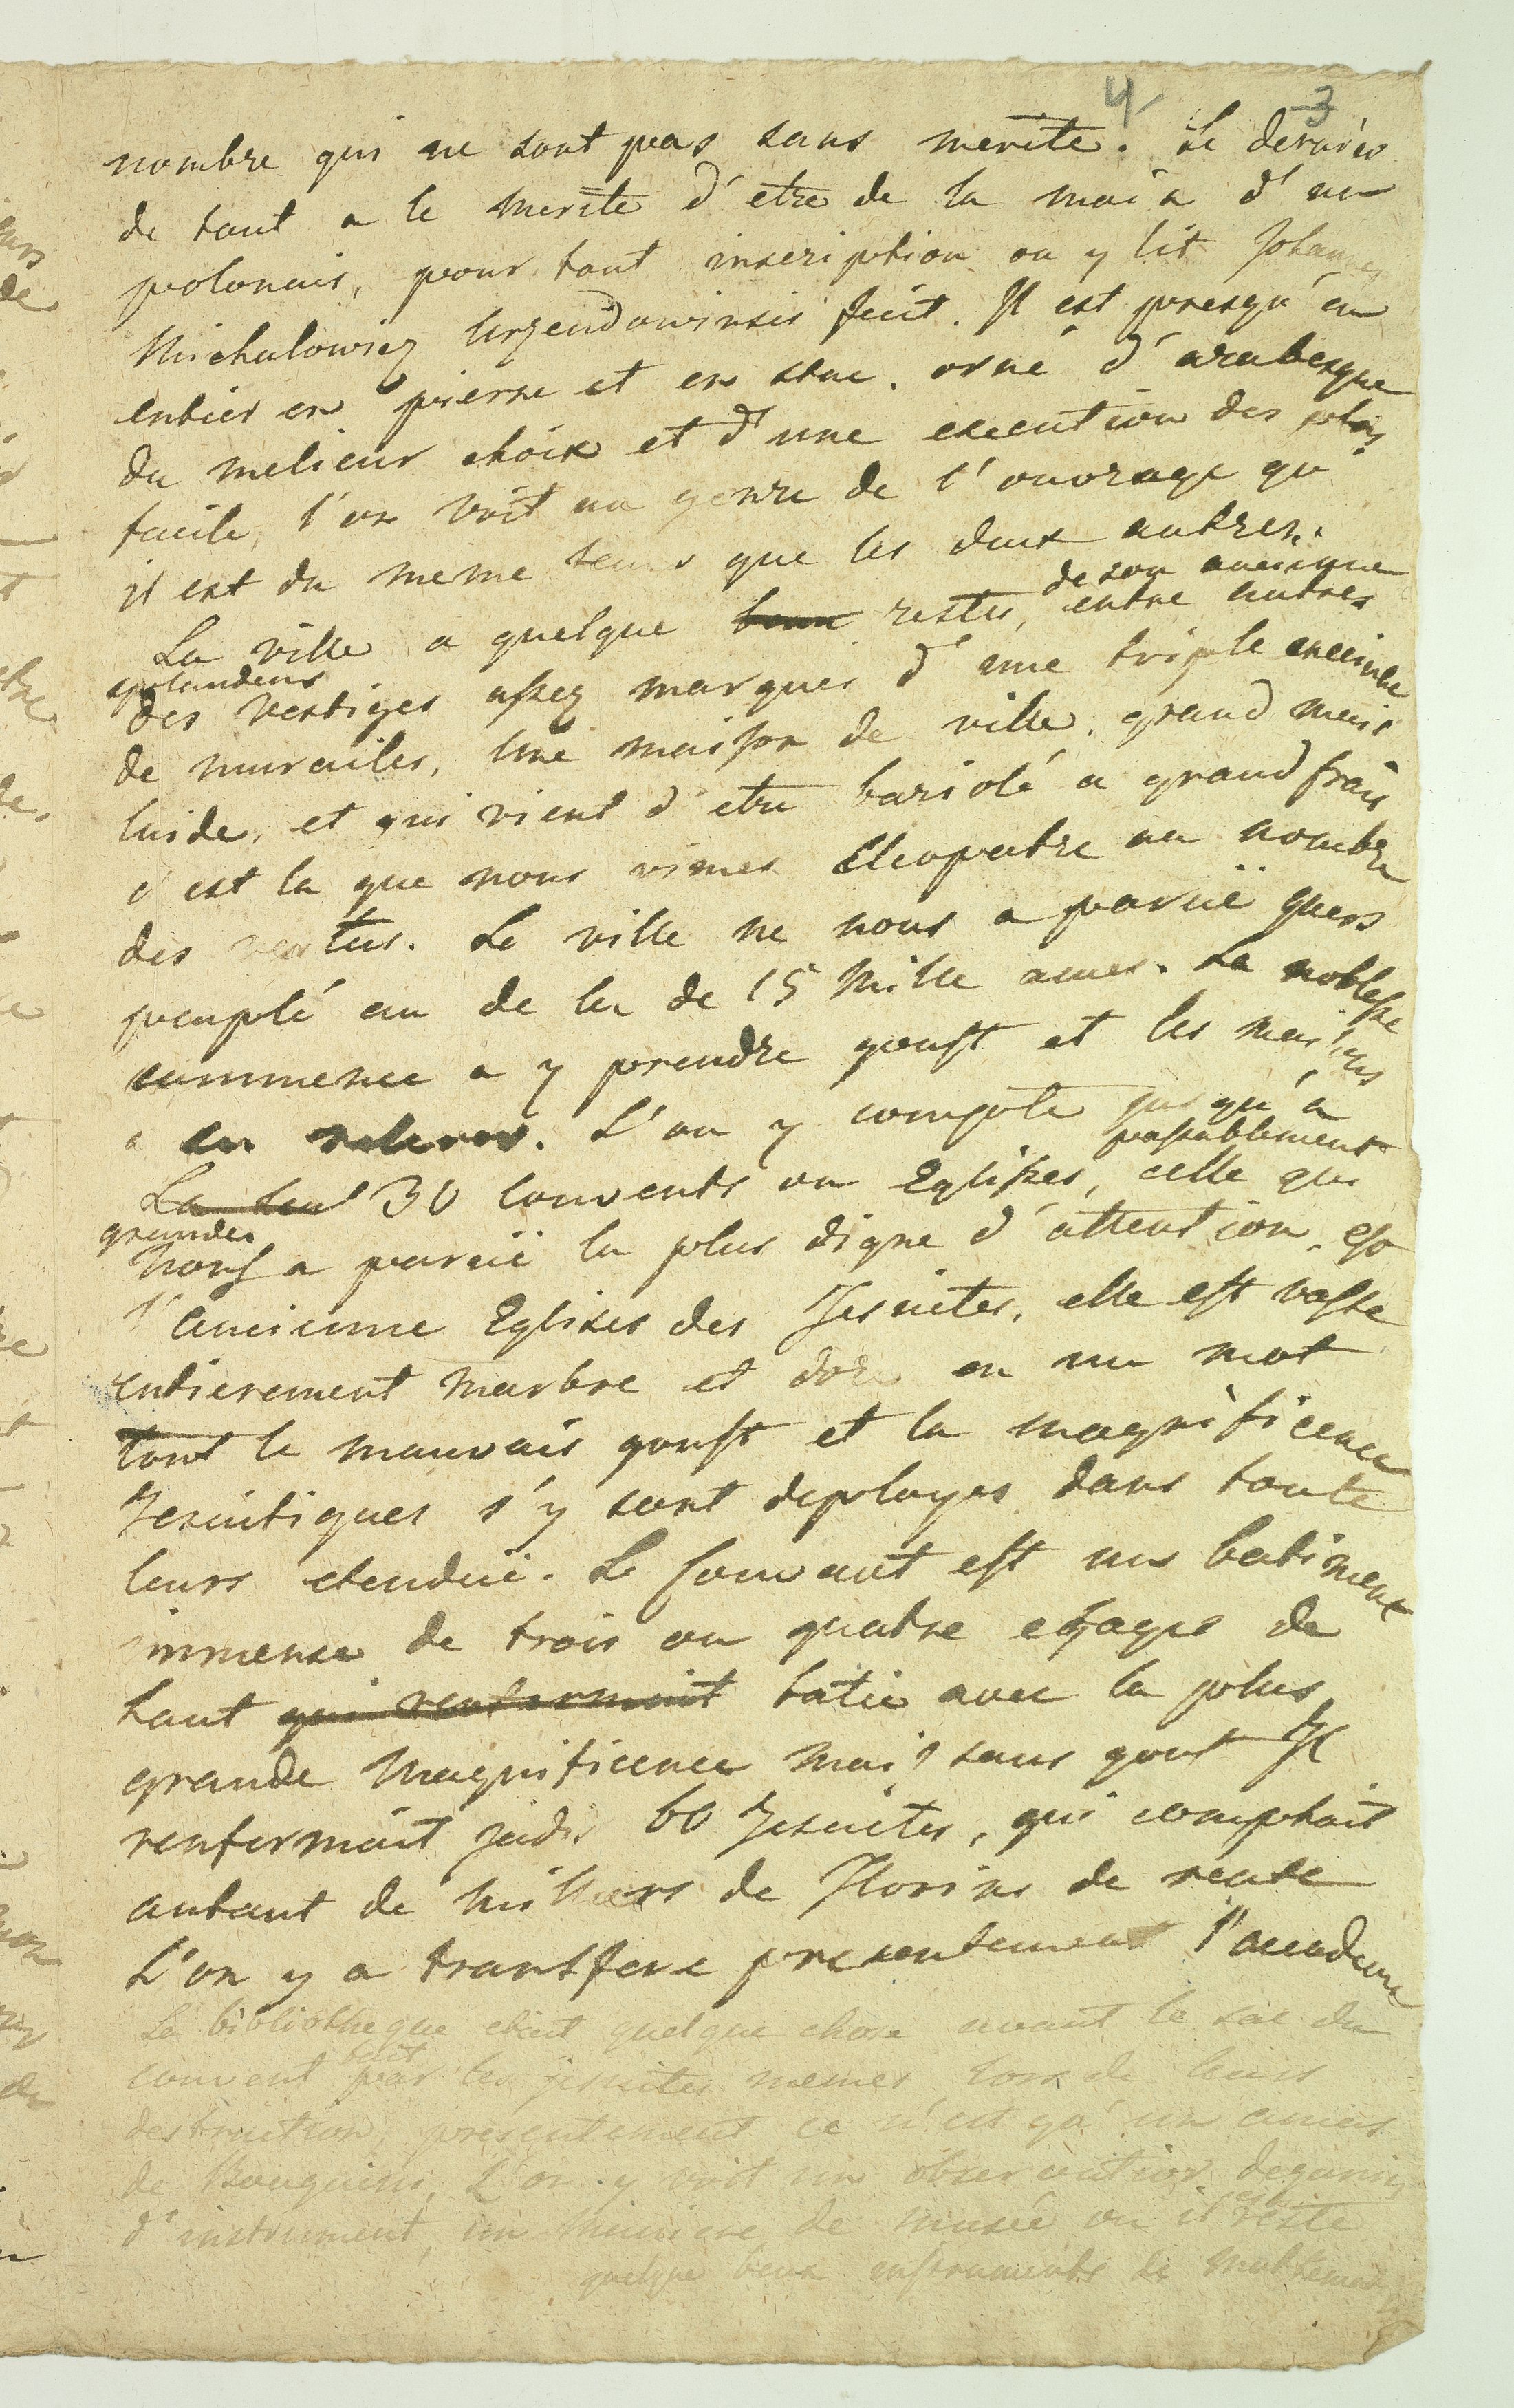 4 3
nombre qui ne sont pas sans merite. Le dernier
de tout a le merite d'etre de la main d'un
polonais, pour tout inscription on y lit Johannes
Michalowicz Urzendowinsis fecit. Il est presqu'en
entier en pierre et en stuc. orné d'arabesque
du melieur choix et d'une execution des plus
facile, l'on voit au genre de l'ouvrage qu
il est du meme tems que les deux autres.
La ville a quelque beau restes, de son ancienne
splandeur entre autres
des vestiges assez marqués d'une triple enceinte
de murailes, une maison de ville, grand mais
laide, et qui vient d'etre bariolé a grand frais
c'est la que nous vimes Cleopatre au nombre
des vertus. La ville ne nous a paruë guers
peuplé au de la de 15 Mille ames. La noblesse
commence a y prendre goust et les maisons
a se relever. L'on y compte jusqu'a
La seul 30 couvents ou Eglises, passablement
grandes celle qui
nous a paruë la plus digne d'attention, est
l'ancienne Eglises des Jesuites, elle est vaste
entierement marbre et doré en un mot
tout le mauvais goust et la magnificence
Jesuitiques s'y sont deployes dans toute
leurs etenduë. Le Couvant est un batiment
immense de trois ou quatre etages de
haut qui renfermait batie avec la plus
grande magnificence mais sans gout Il
renfermait jadis 60 Jesuites, qui comptait
autant de milliers de Florins de rente
L'on y a transferé presentement l'academie
La bibliotheque etait quelque chose avant le sac du
couvent fait par les jesuites memes lors de leurs
destruction, presentement ce n'est qu'un amas
de Bouquins, L'on y voit un observatior degarni
d'instrument, un maniere de musée ou il reste
quelque beau instruments de Mathematiq